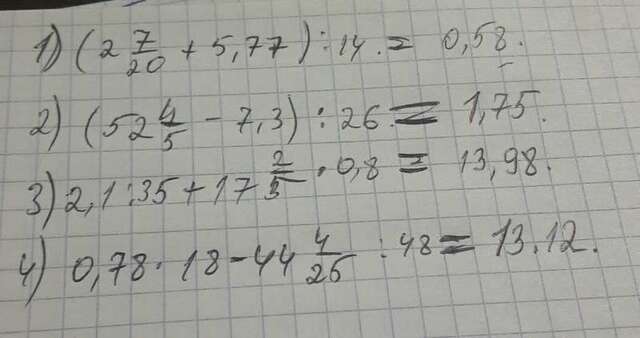 1) (2 7/20 + 5,77) : 14. = 0,58.
2) (52 4/5 - 7,3) : 26. = 1,75.
3) 2,1 : 35 + 17 2/5 · 0,8 = 13,98.
4) 0,78 · 18 - 44 4/25 : 48 = 13.12.